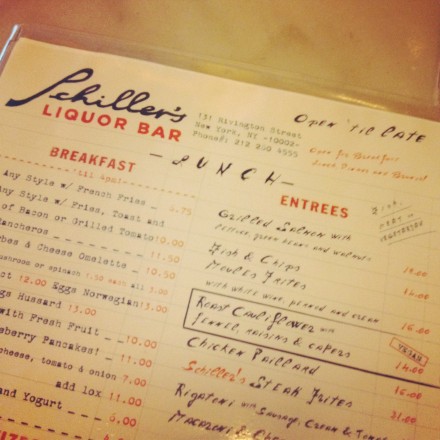 Schiller's
LIQUOR BAR
131 Rivington Street
New York, NY -10002-
Phone#: 212 260 4555
Open 'til Late
Open for Breakfast
Lunch, Dinner and Brunch!
- LUNCH -
BREAKFAST
Any Style w/ French Fries - 8.75
Any Style w/ Fries, Toast and
of Bacon or Grilled Tomato 10.00
Rancheros - - 11.50
rbes & Cheese Omelette - - 10.50
ushroom or spinach 1.50 each all 3.00
ct 12.00 Eggs Norwegian 13.00
gs Hussard 13.00
with Fresh Fruit - - 10.00
eberry Pancakes! - - 11.00
cheese, tomato & onion 7.00
add lox 11.00
and Yogurt - - 6.00
8.00
ENTREES
Grilled Salmon with
lettuce, green beans and walnuts
Fish & Chips 18.00
Moules Frites 14.00
with white wine, pernod and cream 16.00
Roast Cauliflower with
fennel, raisins & capers VEGAN 14.00
Chicken Paillard 16.00
Schiller's Steak Frites 31.00
Rigatoni with Sausage, Cream & Tomato
Macaroni & Cheese